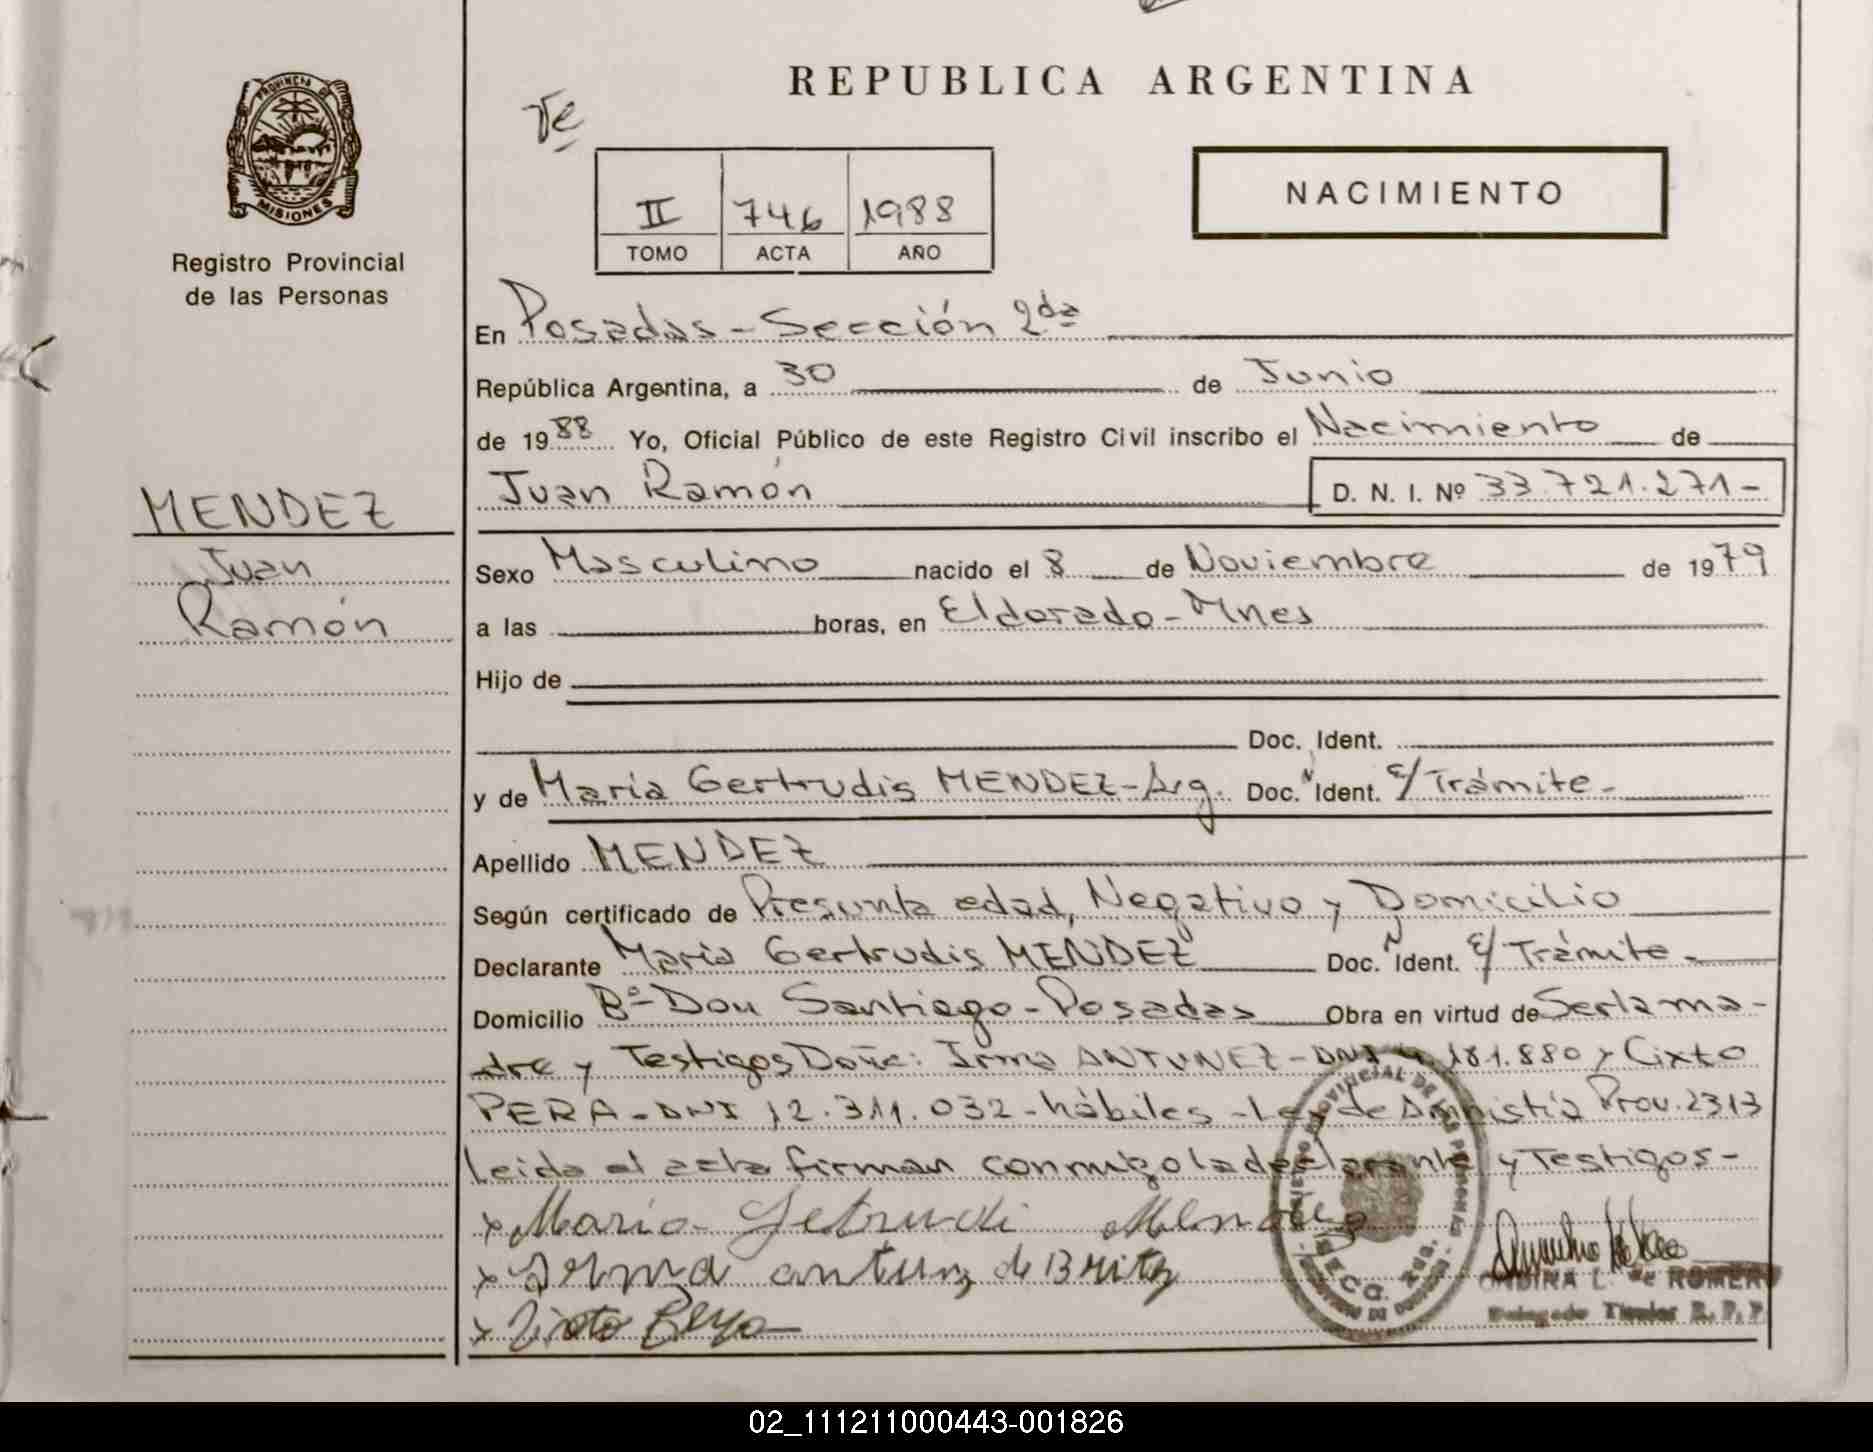 REPUBLICA ARGENTINA
PROVINCIA DE
MISIONES
Registro Provincial
de las Personas
II 746 1988
TOMO ACTA AÑO
NACIMIENTO
En Posadas - Sección 2da
República Argentina, a 30 de Junio
de 1988 Yo, Oficial Público de este Registro Civil inscribo el Nacimiento de
Juan Ramón D. N. I. Nº 33.721.271-
MENDEZ
Juan
Ramón
Sexo Masculino nacido el 8 de Noviembre de 1979
a las horas, en Eldorado - Mnes
Hijo de
Doc. Ident.
y de María Gertrudis MENDEZ - Arg. Doc. Ident. E/ Trámite -
Apellido MENDEZ
Según certificado de Presunta edad, Negativo y Domicilio
Declarante María Gertrudis MENDEZ Doc. Ident. E/ Trámite -
Domicilio Bº - Don Santiago - Posadas Obra en virtud de Ser la ma-
dre y Testigos Doña: Irma ANTUNEZ - DNI 4.181.880 y Cixto
PERA - DNI 12.311.032 - hábiles - Ley de Amnistía Prov. 2313
Leida el acta firman conmigo la declarante y Testigos -
x Maria Getrudi Mendez
x Irma antunz de Britz
x
ONDINA L. de ROMERO
Delegado Titular R. P. P.
02_111211000443-001826